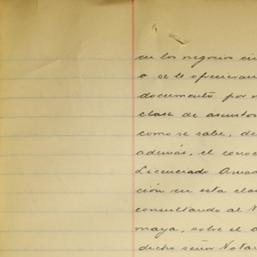 en los negocios en
o se le ofrecieran
documento, por
clase de asuntos
como se sabe, de
además, el conoc
Licenciado
ción en esta cla
consultando al N
maya, sobre el
dicho señor Notar